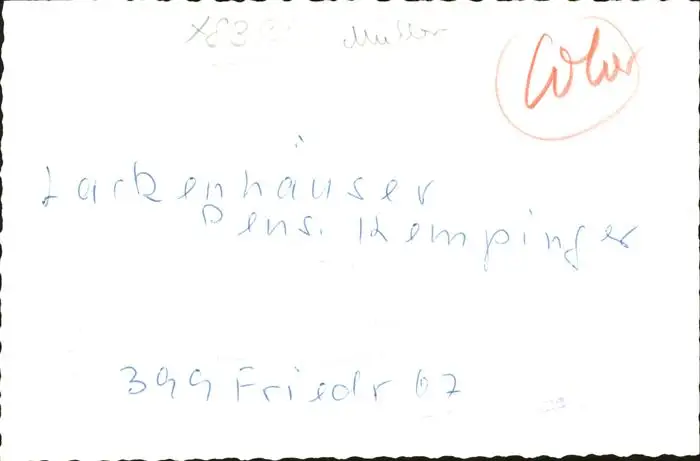 Müller
Color
Lackenhäuser
Pens. Kempinger
399 Friedr 67